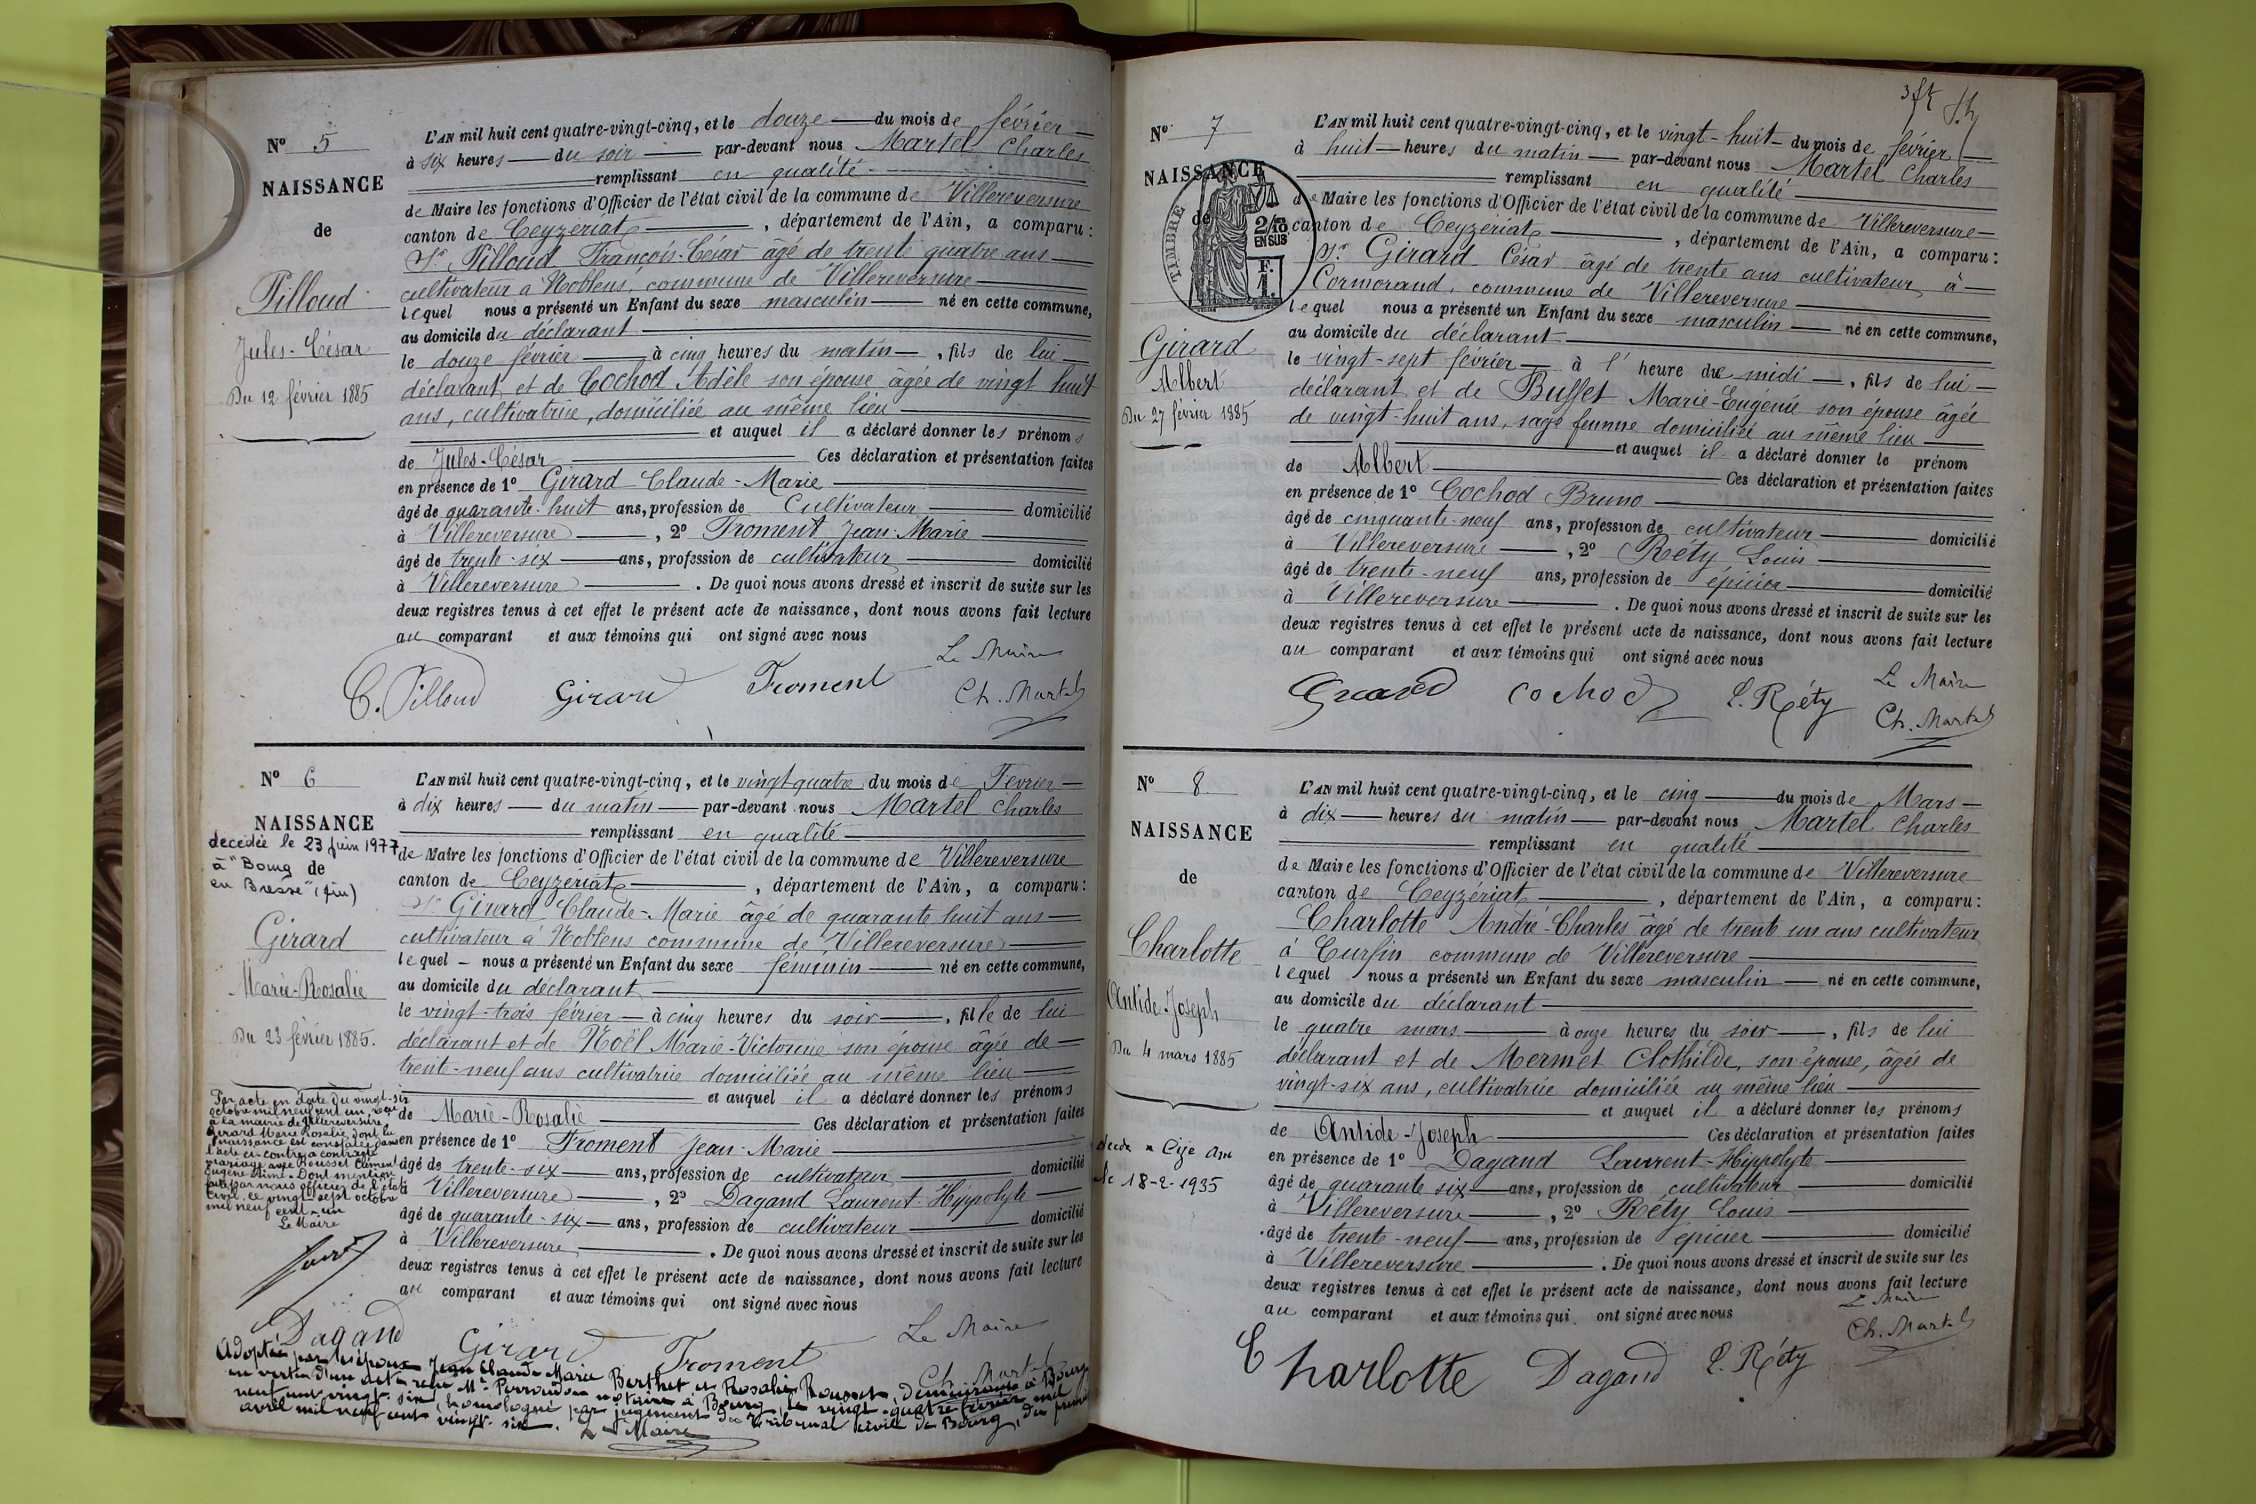 Nº 5
NAISSANCE
de
Pilloud
Jules-César
Du 12 février 1885
L'AN mil huit cent quatre-vingt-cinq, et le douze du mois de février
à six heures du soir par-devant nous Martel Charles
remplissant en qualité
de Maire les fonctions d'Officier de l'état civil de la commune de Villereversure
canton de Ceyzériat, département de l'Ain, a comparu:
Sr Pilloud François-César âgé de trente quatre ans
cultivateur à Noblens, commune de Villereversure
lequel nous a présenté un Enfant du sexe masculin né en cette commune,
au domicile du déclarant
le douze février à cinq heures du matin, fils de lui
déclarant et de Cochod Adèle son épouse âgée de vingt huit
ans, cultivatrice, domiciliée au même lieu
et auquel il a déclaré donner les prénoms
de Jules-César Ces déclaration et présentation faites
en présence de 1º Girard Claude-Marie
âgé de quarante-huit ans, profession de Cultivateur domicilié
à Villereversure, 2º Froment Jean-Marie
âgé de trente-six ans, profession de cultivateur domicilié
à Villereversure. De quoi nous avons dressé et inscrit de suite sur les
deux registres tenus à cet effet le présent acte de naissance, dont nous avons fait lecture
au comparant et aux témoins qui ont signé avec nous
Le Maire
C. Pilloud Girard Froment Ch. Martel
Nº 6
NAISSANCE
décédée le 23 juin 1977
à "Bourg de
en Bresse" (Ain)
Girard
Marie-Rosalie
Du 23 février 1885.
Par acte en date du vingt-six
octobre mil neuf cent un, reçu
à la mairie de Villereversure
Girard Marie Rosalie dont la
naissance est constatée dans
l'acte ci-contre a contracté
mariage avec Rousset Clément
Eugène Aimé. Dont mention
faite par nous officier de l'état
civil, ce vingt sept octobre
mil neuf cent un
Le Maire
L'AN mil huit cent quatre-vingt-cinq, et le vingt-quatre du mois de Février
à dix heures du matin par-devant nous Martel Charles
remplissant en qualité
de Maire les fonctions d'Officier de l'état civil de la commune de Villereversure
canton de Ceyzériat, département de l'Ain, a comparu:
Sr Girard Claude-Marie âgé de quarante huit ans
cultivateur à Noblens commune de Villereversure
lequel nous a présenté un Enfant du sexe féminin né en cette commune,
au domicile du déclarant
le vingt-trois février à cinq heures du soir, fille de lui
déclarant et de Noël Marie-Victorine son épouse âgée de
trente-neuf ans cultivatrice domiciliée au même lieu
et auquel il a déclaré donner les prénoms
de Marie-Rosalie Ces déclaration et présentation faites
en présence de 1º Froment Jean-Marie
âgé de trente-six ans, profession de cultivateur domicilié
à Villereversure, 2º Dagand Laurent-Hippolyte
âgé de quarante-six ans, profession de cultivateur domicilié
à Villereversure. De quoi nous avons dressé et inscrit de suite sur les
deux registres tenus à cet effet le présent acte de naissance, dont nous avons fait lecture
au comparant et aux témoins qui ont signé avec nous
Le Maire
Dagand Girard Froment Ch. Martel
Adoptée par les époux Jean Claude Marie Berthet et Rosalie Rousset, demeurant à Bourg
en vertu d'un acte reçu Me Perroudon notaire à Bourg, le vingt-quatre février mil
neuf cent vingt-six, homologué par jugement du Tribunal civil de Bourg, du premier
avril mil neuf cent vingt-six. Le Maire
3
Nº 7
NAISSANCE
de
TIMBRE
2/10
EN SUS
F.
1.
Girard
Albert
Du 27 février 1885
L'AN mil huit cent quatre-vingt-cinq, et le vingt-huit du mois de février
à huit heures du matin par-devant nous Martel Charles
remplissant en qualité
de Maire les fonctions d'Officier de l'état civil de la commune de Villereversure
canton de Ceyzériat, département de l'Ain, a comparu:
Sr Girard César âgé de trente ans cultivateur à
Cormorand, commune de Villereversure
lequel nous a présenté un Enfant du sexe masculin né en cette commune,
au domicile du déclarant
le vingt-sept février à 1 heure du midi, fils de lui
déclarant et de Buffet Marie-Eugénie son épouse âgée
de vingt-huit ans, sage femme domiciliée au même lieu
et auquel il a déclaré donner le prénom
de Albert Ces déclaration et présentation faites
en présence de 1º Cochod Bruno
âgé de cinquante-neuf ans, profession de cultivateur domicilié
à Villereversure, 2º Réty Louis
âgé de trente-neuf ans, profession de épicier domicilié
à Villereversure. De quoi nous avons dressé et inscrit de suite sur les
deux registres tenus à cet effet le présent acte de naissance, dont nous avons fait lecture
au comparant et aux témoins qui ont signé avec nous
Le Maire
Girard Cochod L. Réty Ch. Martel
Nº 8
NAISSANCE
de
Charlotte
Antide-Joseph
Du 4 mars 1885
décédé à Cize Ain
le 18-2-1935
L'AN mil huit cent quatre-vingt-cinq, et le cinq du mois de Mars
à dix heures du matin par-devant nous Martel Charles
remplissant en qualité
de Maire les fonctions d'Officier de l'état civil de la commune de Villereversure
canton de Ceyzériat, département de l'Ain, a comparu:
Charlotte André-Charles âgé de trente un ans cultivateur
à Curfin commune de Villereversure
lequel nous a présenté un Enfant du sexe masculin né en cette commune,
au domicile du déclarant
le quatre mars à onze heures du soir, fils de lui
déclarant et de Mermet Clothilde, son épouse, âgée de
vingt-six ans, cultivatrice domiciliée au même lieu
et auquel il a déclaré donner les prénoms
de Antide-Joseph Ces déclaration et présentation faites
en présence de 1º Dagand Laurent-Hippolyte
âgé de quarante six ans, profession de cultivateur domicilié
à Villereversure, 2º Réty Louis
âgé de trente-neuf ans, profession de épicier domicilié
à Villereversure. De quoi nous avons dressé et inscrit de suite sur les
deux registres tenus à cet effet le présent acte de naissance, dont nous avons fait lecture
au comparant et aux témoins qui ont signé avec nous
Le Maire
Charlotte Dagand L. Réty Ch. Martel